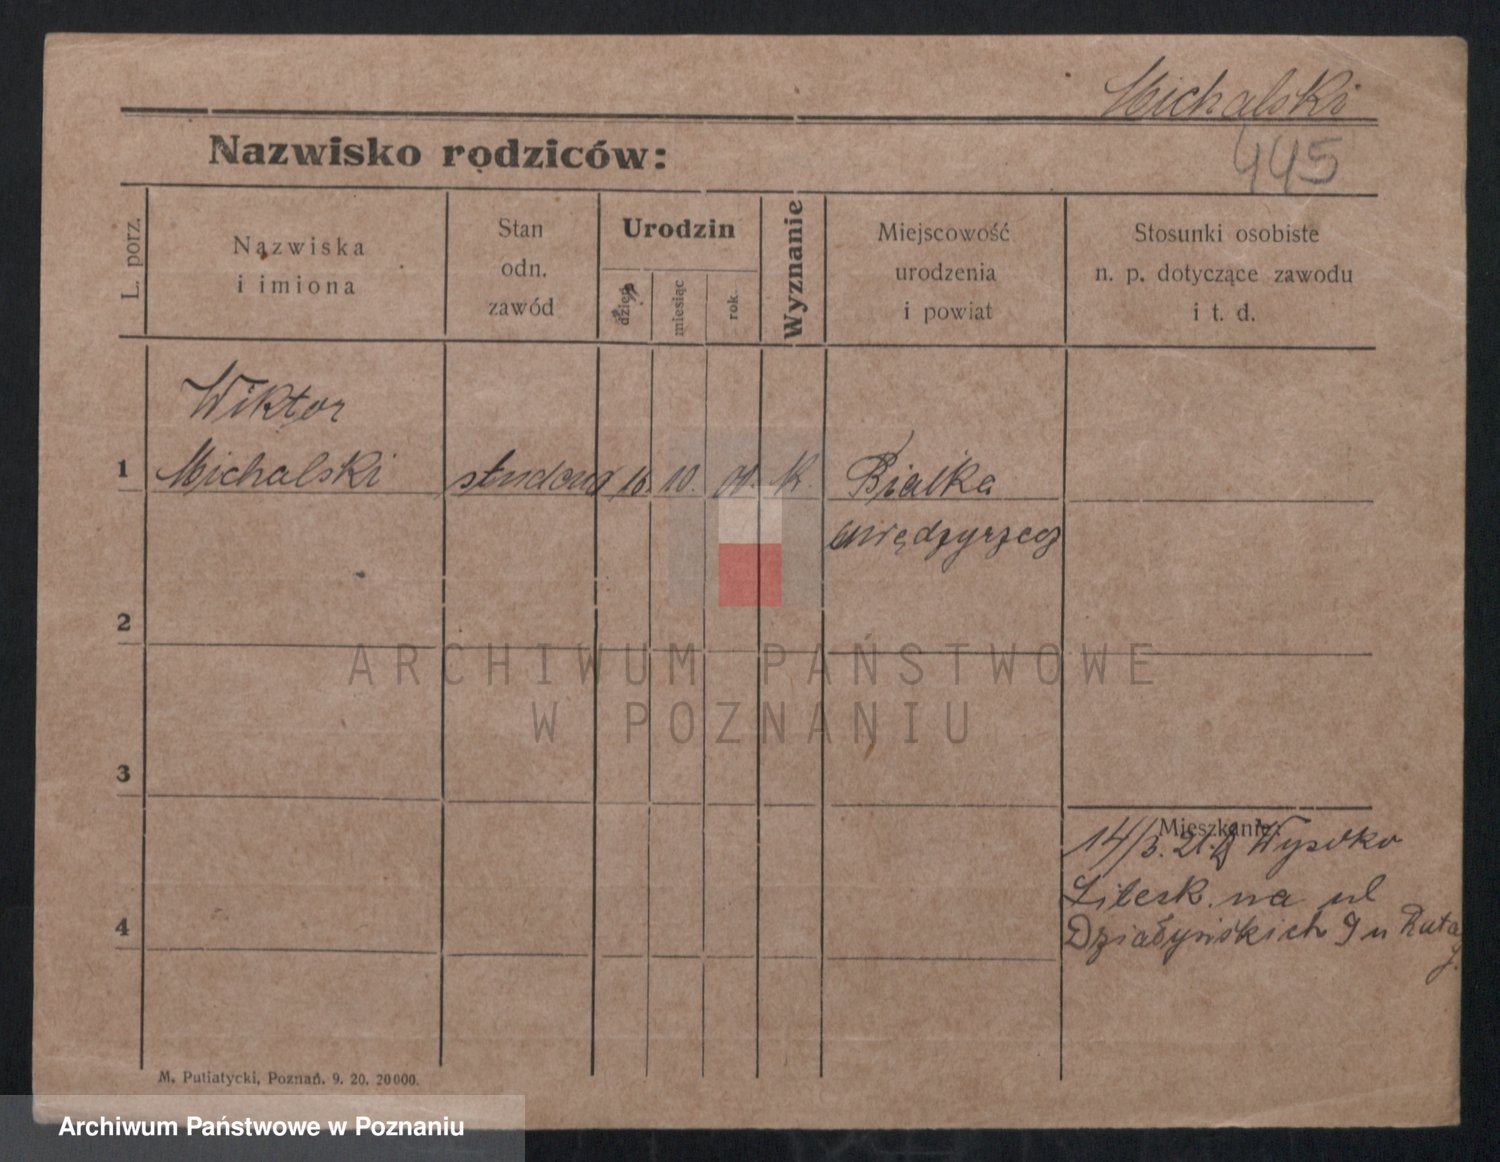 Michalski
445
Nazwisko rodziców:
L. porz.
Nazwiska
i imiona
Stan
odn.
zawód
Urodzin
dzień
miesiąc
rok.
Wyznanie
Miejscowość
urodzenia
i powiat
Stosunki osobiste
n. p. dotyczące zawodu
i t. d.
Wiktor
1 Michalski student 16. 10. 01. k. Bialka
międzyrzecz
2
ARCHIWUM PAŃSTWOWE
W POZNANIU
3
Mieszkanie:
14/3. 21. Wysoko
Litesk. na ul
4
Działyńskich 9 u Rata
j.
M. Putiatycki, Poznań. 9. 20. 20000.
Archiwum Państwowe w Poznaniu